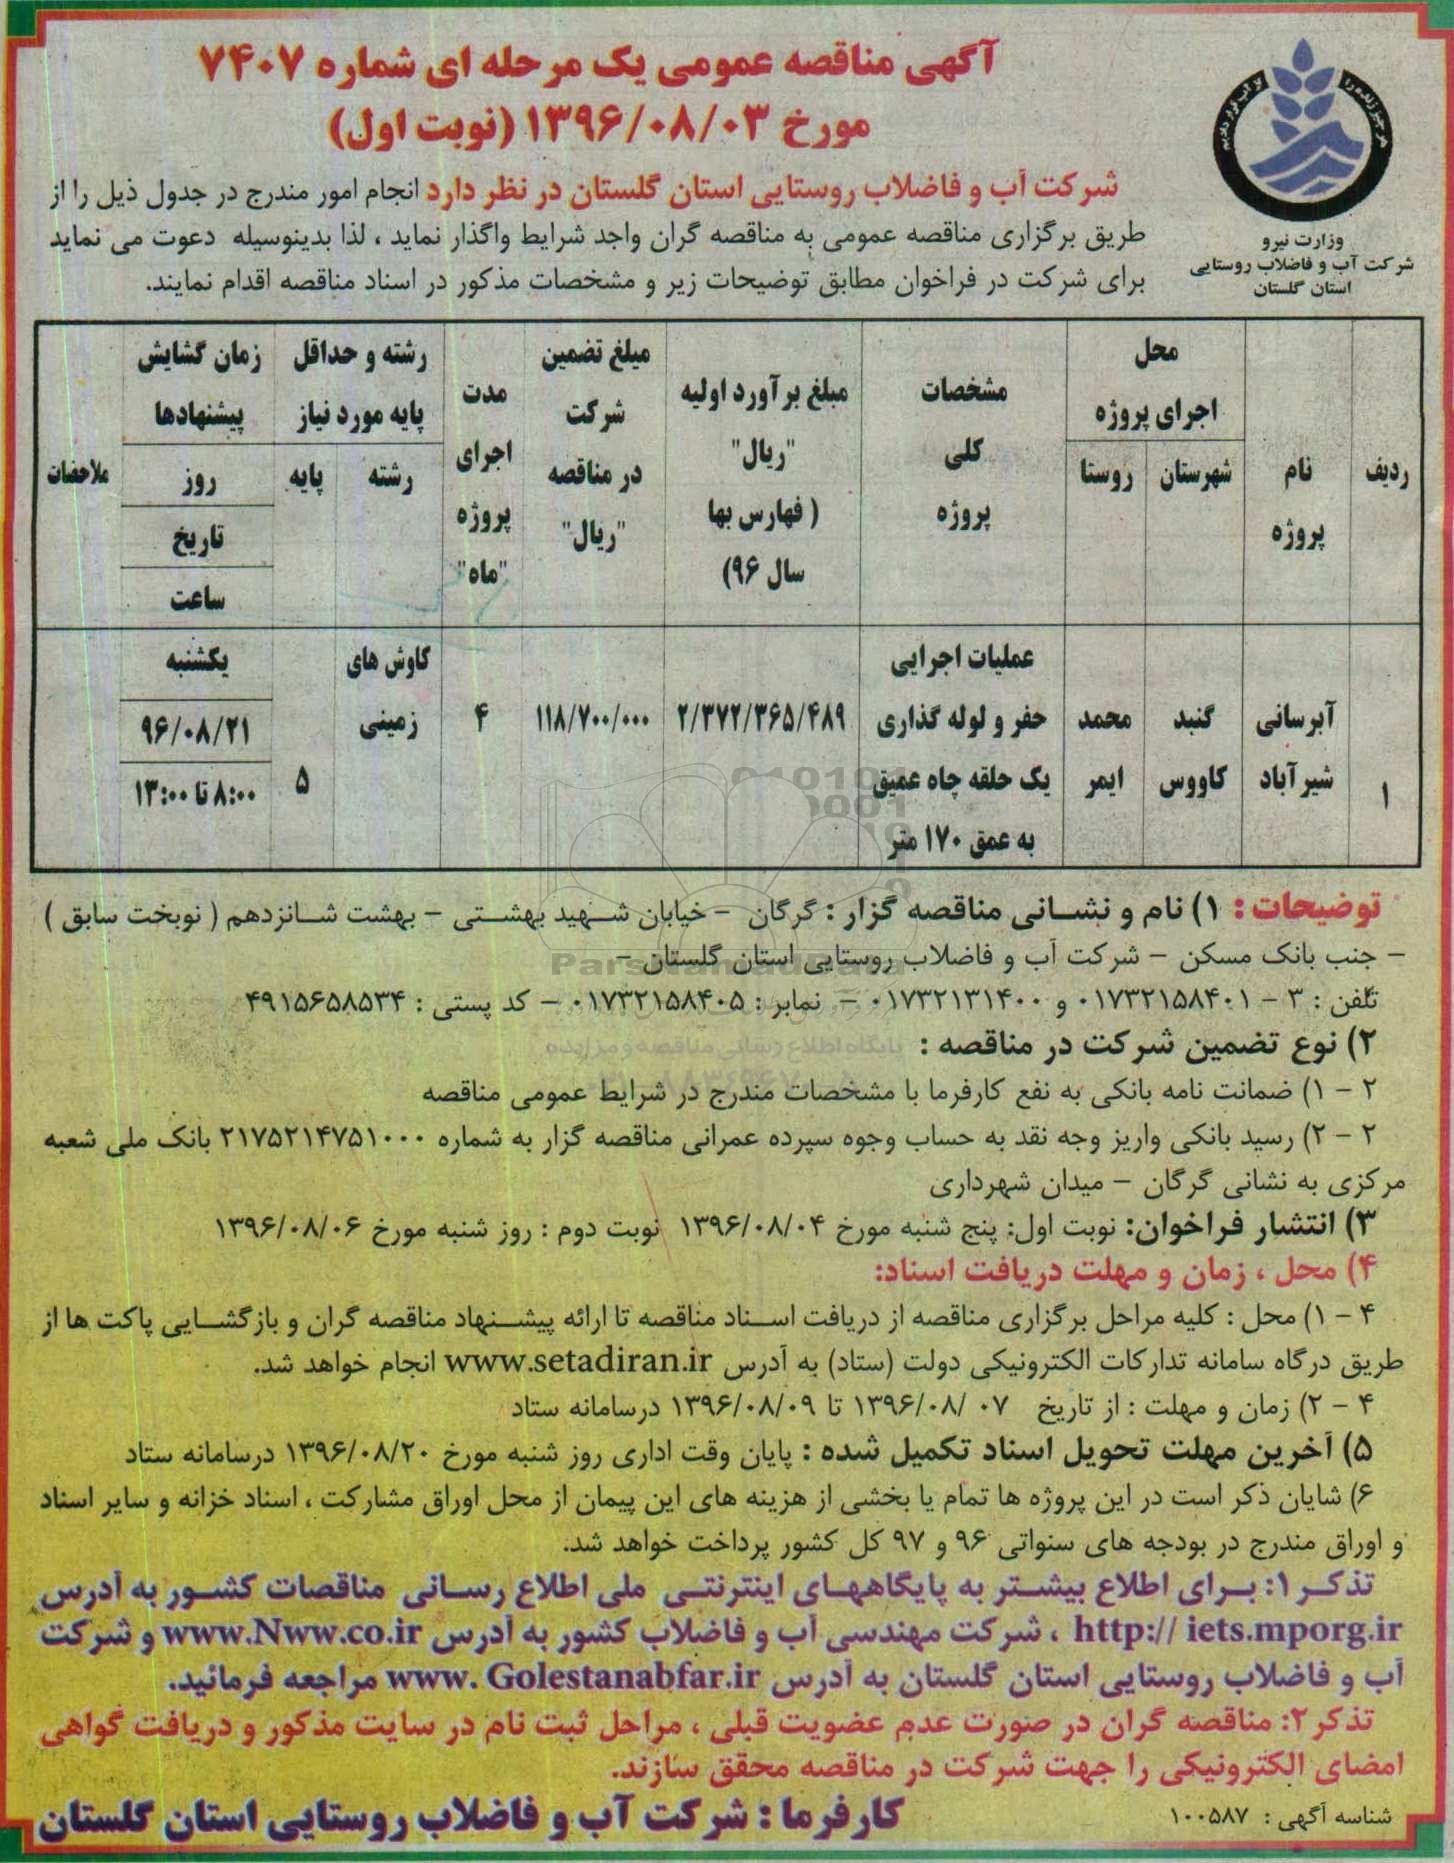 آگهی مناقصه عمومی یک مرحله ای شماره ۷۴۰۷
مورخ ۱۳۹۶/۰۸/۰۳ (نوبت اول)
هر چیز زنده را از آب قرار دادیم
وزارت نیرو
شرکت آب و فاضلاب روستایی
استان گلستان
شرکت آب و فاضلاب روستایی استان گلستان در نظر دارد انجام امور مندرج در جدول ذیل را از
طریق برگزاری مناقصه عمومی به مناقصه گران واجد شرایط واگذار نماید ، لذا بدینوسیله دعوت می نماید
برای شرکت در فراخوان مطابق توضیحات زیر و مشخصات مذکور در اسناد مناقصه اقدام نمایند.
ردیف
نام
پروژه
محل
اجرای پروژه
شهرستان
روستا
مشخصات
کلی
پروژه
مبلغ برآورد اولیه
"ریال"
( فهارس بها
سال ۹۶)
مبلغ تضمین
شرکت
در مناقصه
"ریال"
مدت
اجرای
پروژه
"ماه"
رشته و حداقل
پایه مورد نیاز
رشته
پایه
زمان گشایش
پیشنهادها
روز
تاریخ
ساعت
ملاحضات
۱
آبرسانی
شیرآباد
گنبد
کاووس
محمد
ایمر
عملیات اجرایی
حفر و لوله گذاری
یک حلقه چاه عمیق
به عمق ۱۷۰ متر
۲/۳۷۲/۳۶۵/۴۸۹
۱۱۸/۷۰۰/۰۰۰
۴
کاوش های
زمینی
۵
یکشنبه
۹۶/۰۸/۲۱
۸:۰۰ تا ۱۳:۰۰
توضیحات : ۱) نام و نشانی مناقصه گزار : گرگان - خیابان شهید بهشتی - بهشت شانزدهم ( نوبخت سابق )
- جنب بانک مسکن - شرکت آب و فاضلاب روستایی استان گلستان -
تلفن : ۳ - ۰۱۷۳۲۱۵۸۴۰۱ و ۰۱۷۳۲۱۳۱۴۰۰ - نمابر : ۰۱۷۳۲۱۵۸۴۰۵ - کد پستی : ۴۹۱۵۶۵۸۵۳۴
۲) نوع تضمین شرکت در مناقصه :
۲ - ۱) ضمانت نامه بانکی به نفع کارفرما با مشخصات مندرج در شرایط عمومی مناقصه
۲ - ۲) رسید بانکی واریز وجه نقد به حساب وجوه سپرده عمرانی مناقصه گزار به شماره ۲۱۷۵۲۱۴۷۵۱۰۰۰ بانک ملی شعبه
مرکزی به نشانی گرگان - میدان شهرداری
۳) انتشار فراخوان: نوبت اول: پنج شنبه مورخ ۱۳۹۶/۰۸/۰۴ نوبت دوم : روز شنبه مورخ ۱۳۹۶/۰۸/۰۶
۴) محل ، زمان و مهلت دریافت اسناد:
۴ - ۱) محل : کلیه مراحل برگزاری مناقصه از دریافت اسناد مناقصه تا ارائه پیشنهاد مناقصه گران و بازگشایی پاکت ها از
طریق درگاه سامانه تدارکات الکترونیکی دولت (ستاد) به آدرس www.setadiran.ir انجام خواهد شد.
۴ - ۲) زمان و مهلت : از تاریخ ۰۷ /۱۳۹۶/۰۸ تا ۱۳۹۶/۰۸/۰۹ درسامانه ستاد
۵) آخرین مهلت تحویل اسناد تکمیل شده : پایان وقت اداری روز شنبه مورخ ۱۳۹۶/۰۸/۲۰ درسامانه ستاد
۶) شایان ذکر است در این پروژه ها تمام یا بخشی از هزینه های این پیمان از محل اوراق مشارکت ، اسناد خزانه و سایر اسناد
و اوراق مندرج در بودجه های سنواتی ۹۶ و ۹۷ کل کشور پرداخت خواهد شد.
تذکر ۱: برای اطلاع بیشتر به پایگاههای اینترنتی ملی اطلاع رسانی مناقصات کشور به آدرس
http:// iets.mporg.ir ، شرکت مهندسی آب و فاضلاب کشور به آدرس www.Nww.co.ir و شرکت
آب و فاضلاب روستایی استان گلستان به آدرس www. Golestanabfar.ir مراجعه فرمائید.
تذکر ۲: مناقصه گران در صورت عدم عضویت قبلی ، مراحل ثبت نام در سایت مذکور و دریافت گواهی
امضای الکترونیکی را جهت شرکت در مناقصه محقق سازند.
شناسه آگهی : ۱۰۰۵۸۷
کارفرما : شرکت آب و فاضلاب روستایی استان گلستان